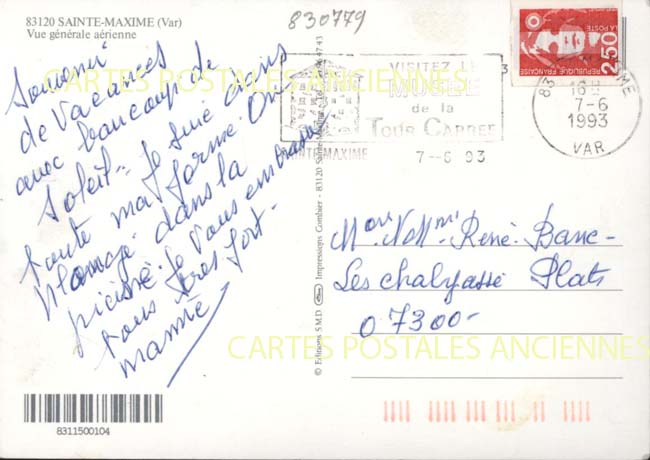 83120 SAINTE-MAXIME (Var)
Vue générale aérienne
830779
Souvenir
de Vacances
avec beaucoup de
Soleil - Je suis dans
toute ma forme On
plonge dans la
piscine. Je vous embrasse
tous très fort -
mamie
8311500104
© Editions S.M.D Impressions Combier - 83120 Sainte-Maxime
VISITEZ LE
MUSÉE
de la
TOUR CARREE
SAINTE-MAXIME
7-6 93
83
16
7-6
1993
VAR
RÉPUBLIQUE FRANÇAISE
LA POSTE
2,50
René Banc-
Les chalyassé Plats
07300-
CARTES POSTALES ANCIENNES
CARTES POSTALES ANCIENNES